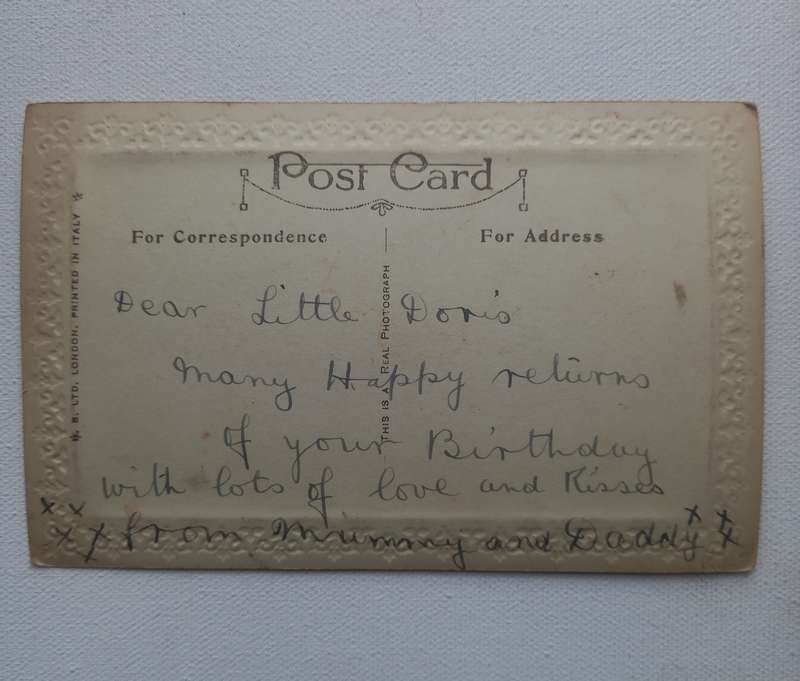 Post Card
For Correspondence
For Address
B. LTD, LONDON. PRINTED IN ITALY
THIS IS A REAL PHOTOGRAPH
Dear Little Doris
Many Happy returns
of your Birthday
with lots of love and Kisses
x x x x from Mummy and Daddy x x x x